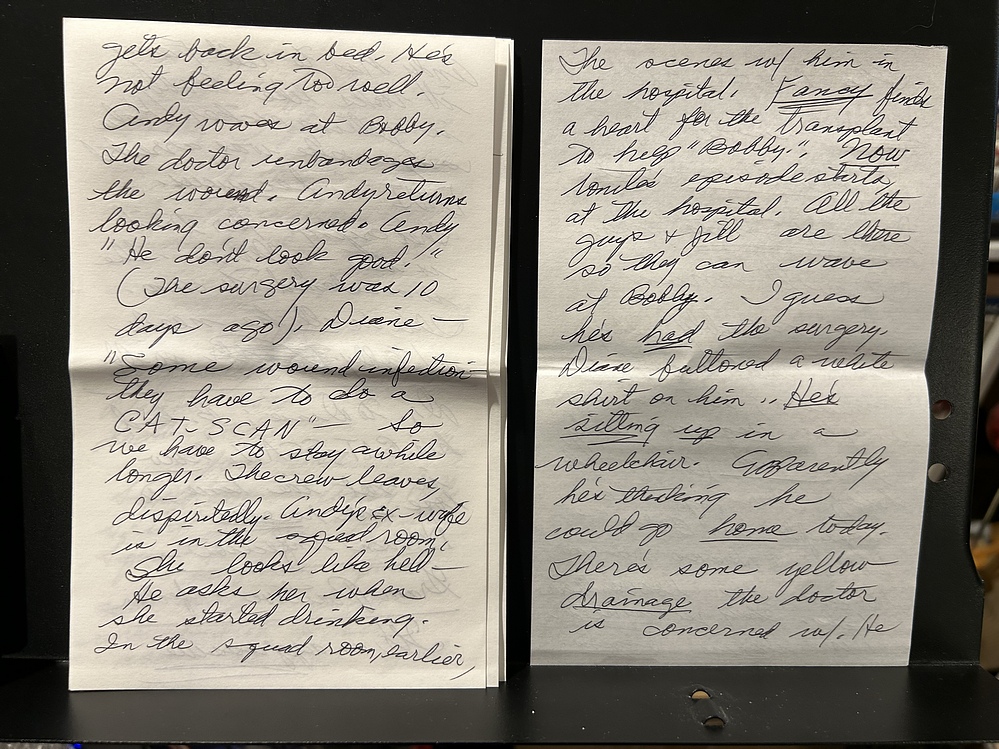 gets back in bed. He's
not feeling too well.
Andy waves at Bobby.
The doctor unbandages
the wound. Andy returns
looking concerned. Andy
"He don't look good!"
(The surgery was 10
days ago). Diane —
"Some wound infection
they have to do a
CAT-SCAN" — So
we have to stay awhile
longer. The crew leaves,
dispiritedly. Andy's ex-wife
is in the squad room.
She looks like hell —
He asks her when
she started drinking.
In the squad room, earlier,
The scenes w/ him in
the hospital. Fancy finds
a heart for the transplant
to help "Bobby". Now
tonite's episode starts
at the hospital. All the
guys & Jill are there
so they can wave
at Bobby. I guess
he's had the surgery.
Diane buttoned a white
shirt on him .. He's
sitting up in a
wheelchair. Apparently
he's thinking he
could go home today.
There's some yellow
drainage the doctor
is concerned w/. He